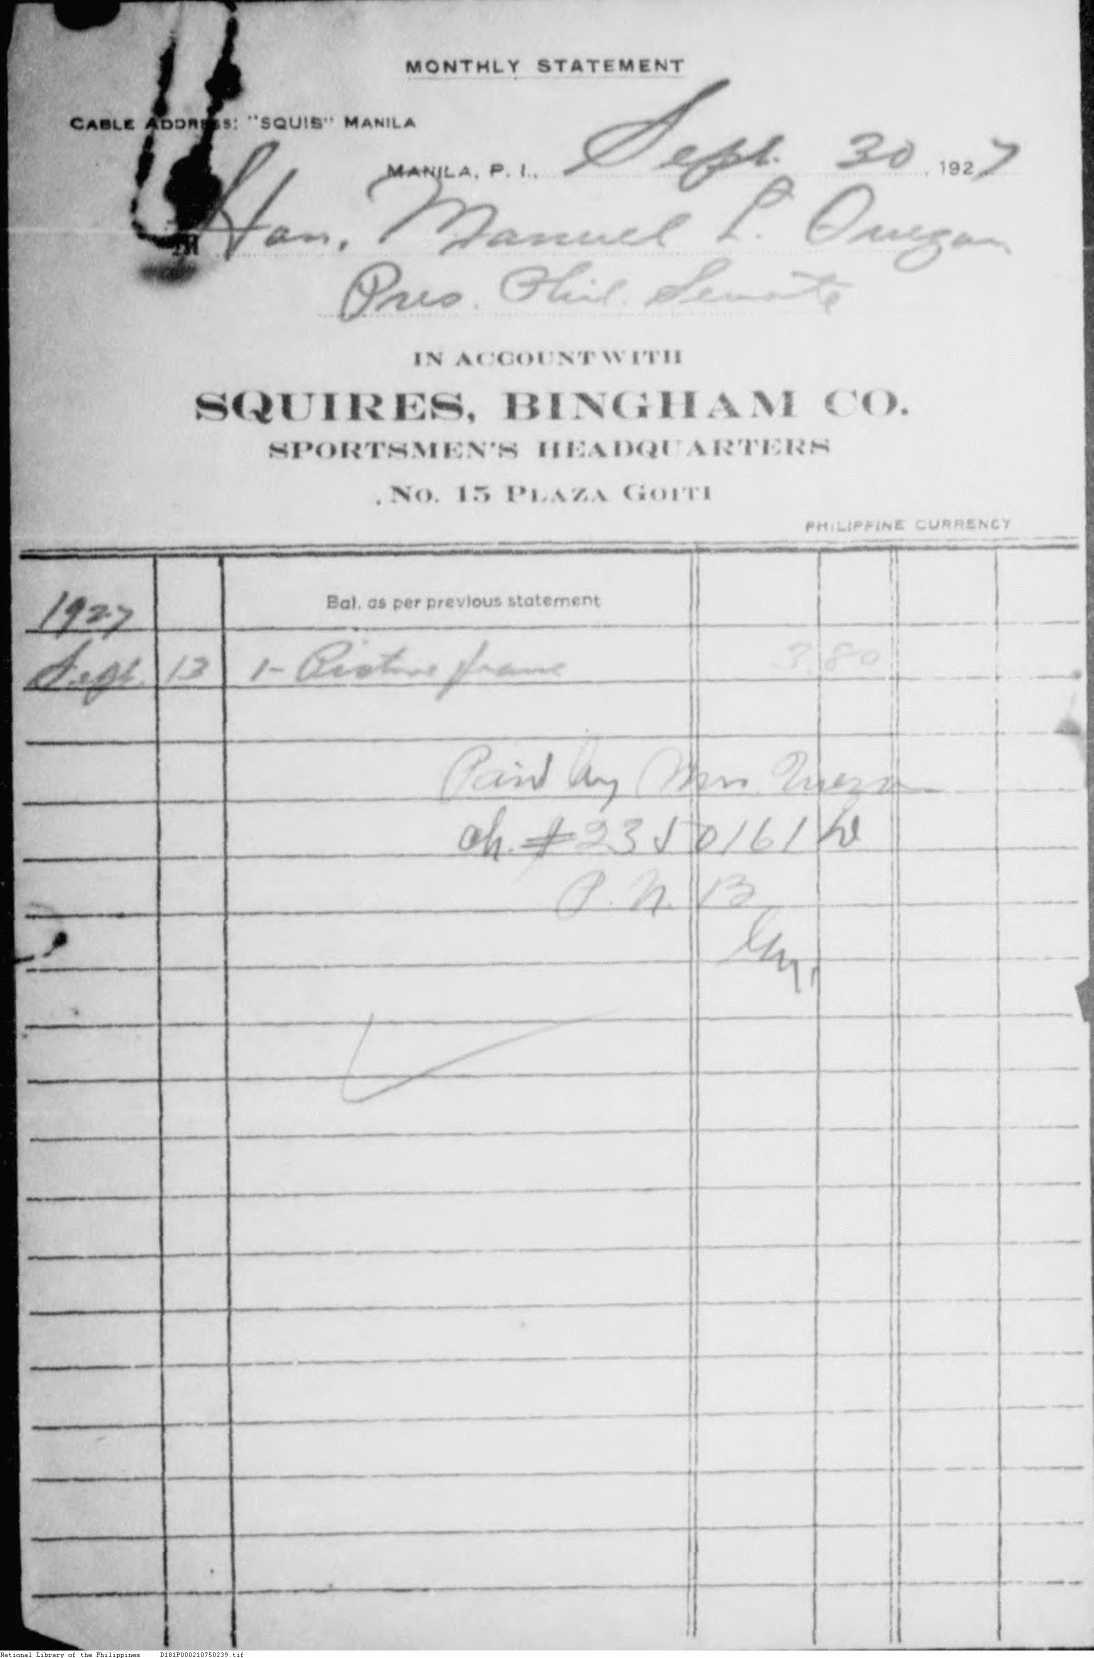 MONTHLY STATEMENT
CABLE ADDRESS: "SQUIS" MANILA
MANILA, P. I., Sept. 30, 1927
M Hon. Manuel L. Quezon
Pres. Phil. Senate
IN ACCOUNT WITH
SQUIRES, BINGHAM CO.
SPORTSMEN'S HEADQUARTERS
No. 15 PLAZA GOITI
PHILIPPINE CURRENCY
1927 Bal. as per previous statement
Sept. 13 1- Picture frame 3 80
Paid by Mrs. Quezon
ch. # 2350161
P. N. B
National Library of the Philippines D181P000210750239.tif